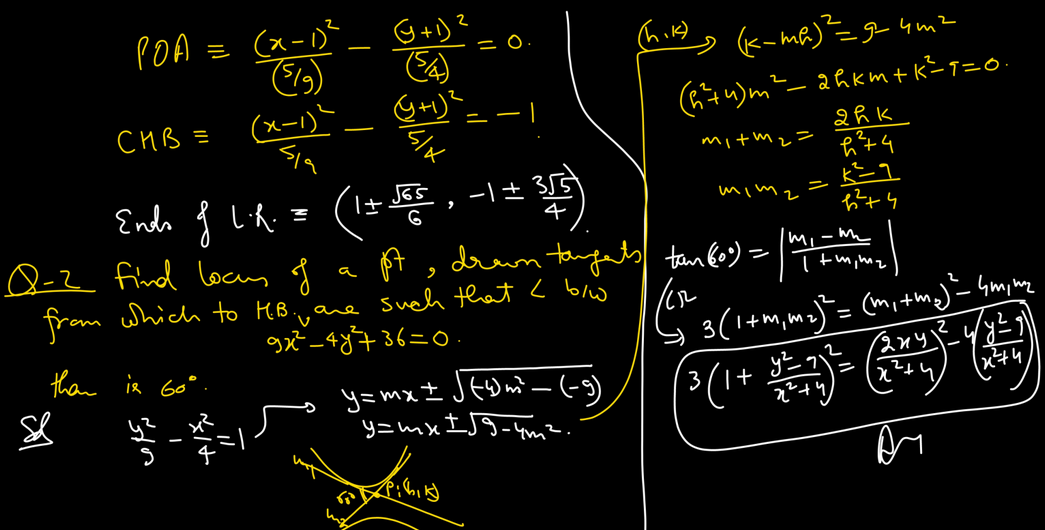 POA ≡ (x-1)²/(5/9) - (y+1)²/(5/4) = 0.
CHB ≡ (x-1)²/5/9 - (y+1)²/5/4 = -1
Ends of L.R. ≡ (1 ± √65/6 , -1 ± 3√5/4).
Q-2 Find locus of a pt, drawn tangents
from which to H.B. are such that < b/w
9x² - 4y² + 36 = 0.
them is 60°.
Sol y²/9 - x²/4 = 1
y = mx ± √(-4)m² - (-9)
y = mx ± √9-4m².
m₁
60°
P(h,k)
m₂
(h,k) → (k-mh)² = 9-4m²
(h²+4)m² - 2hkm + k²-9 = 0.
m₁+m₂ = 2hk/h²+4
m₁m₂ = k²-9/h²+4
tan(60°) = |m₁-m₂/1+m₁m₂|
3(1+m₁m₂)² = (m₁+m₂)² - 4m₁m₂
3(1 + y²-9/x²+4)² = (2xy/x²+4)² - 4(y²-9/x²+4)